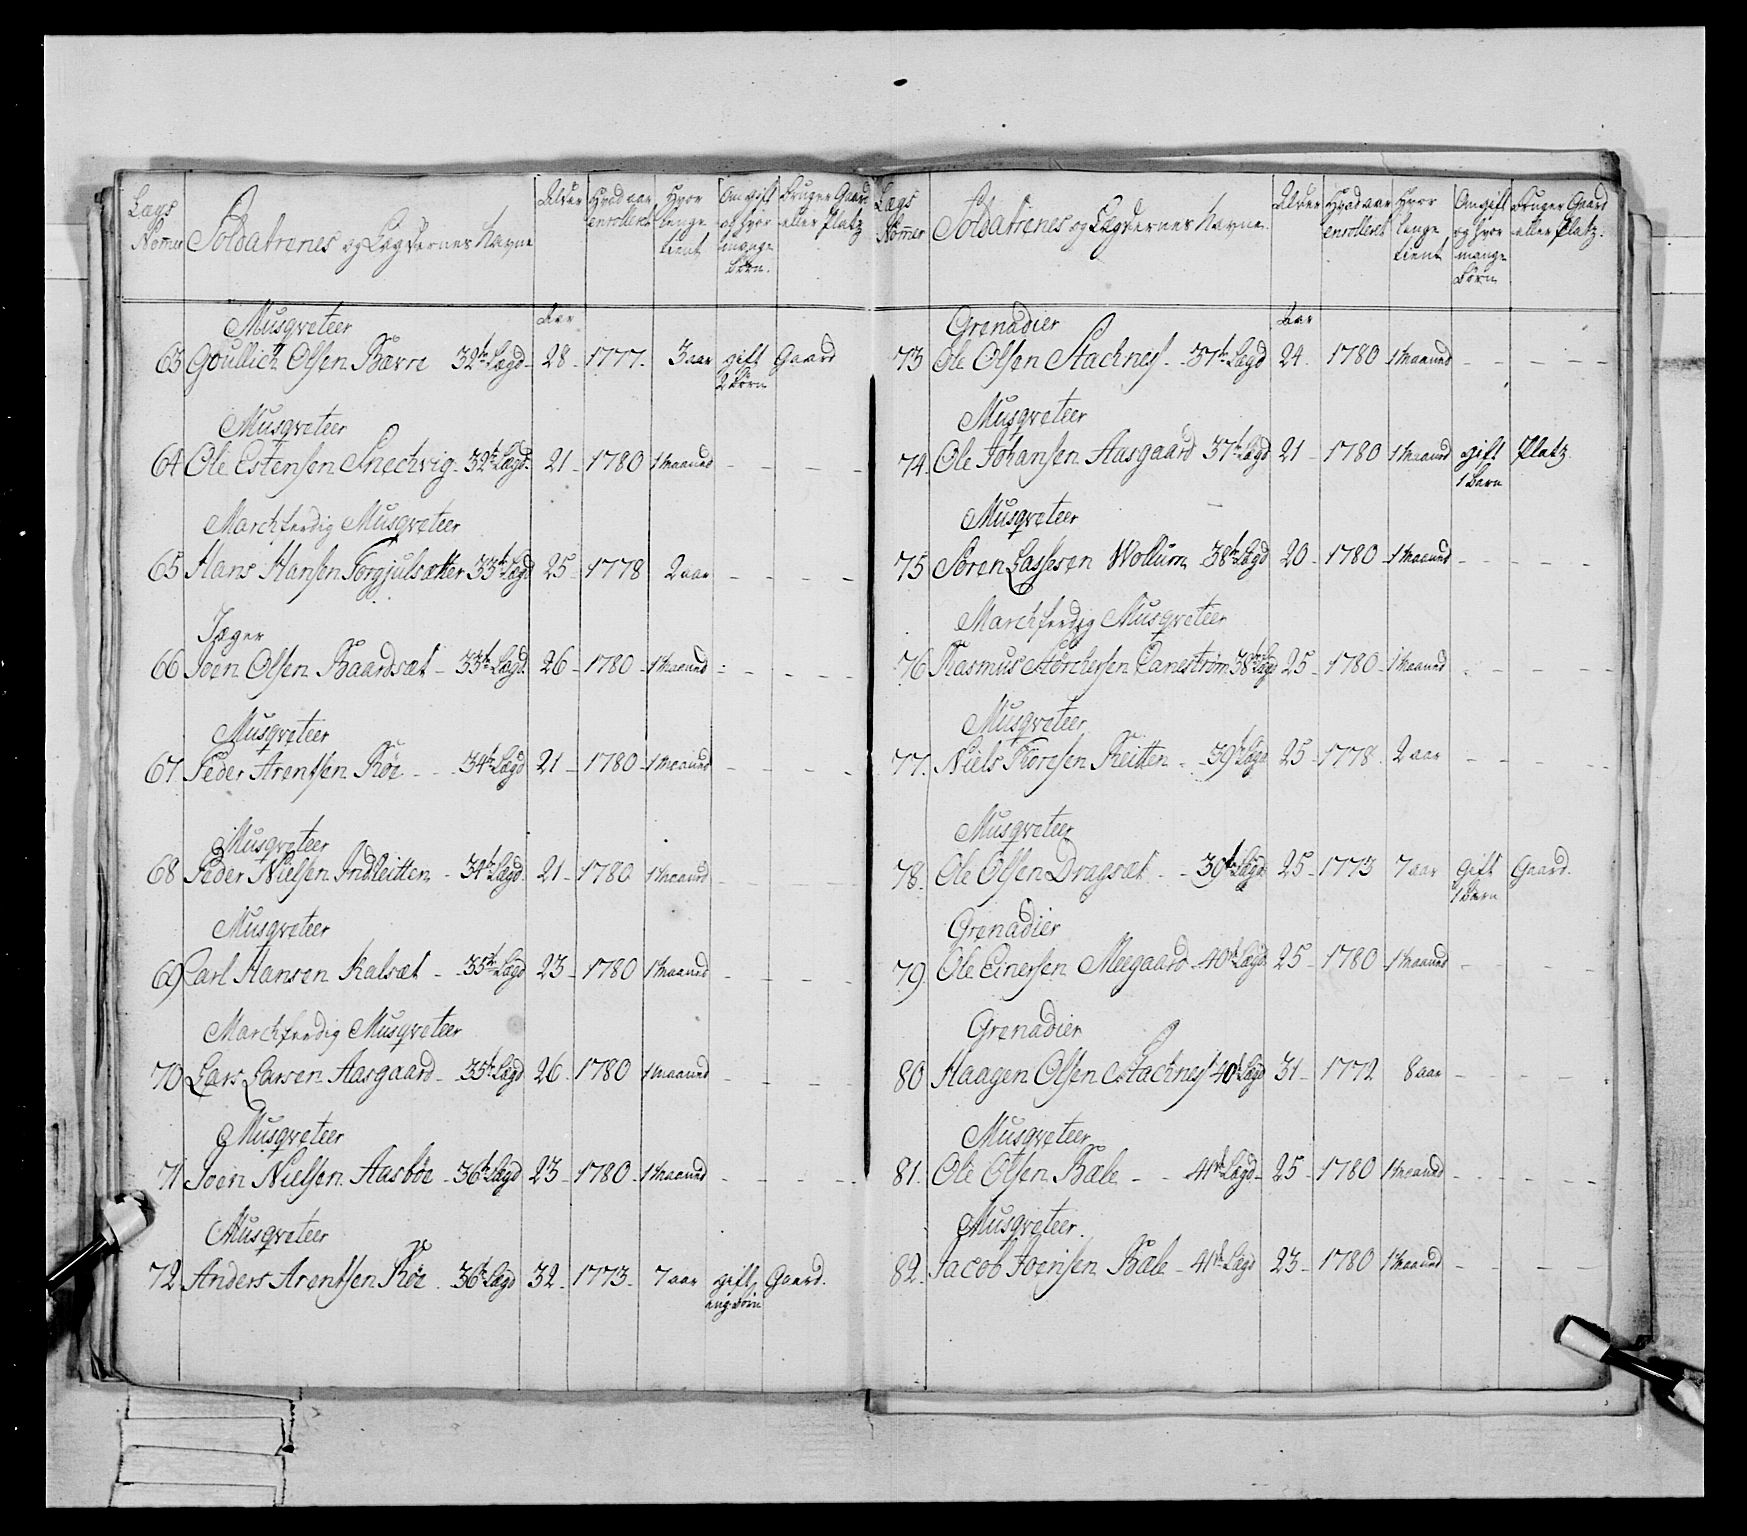 Lægs Nomer | Soldatenes og Lægdernes Navne | Alder | Hvad aar enrolleret | Hvor lenge tient | Om gift og hvor mange Børn. | Bruger Gaard eller Platz
Musqveteer | Aar
63 Goullich Olsen Bævre 32te Lægd - 28 - 1777. 3 aar gift 2 Børn Gaard
Musqveteer
64 Ole Estensen Snechvig - 32te Lægd. 21 - 1780 1 Maaned - - - -
Marchferdig Musqveteer
65 Hans Hansen Torgjulsætter 33te Lægd 25 - 1778 2 aar - - - -
Jæger
66 Joen Olsen Baardsæt - 33te Lægd. 26 - 1780 - 1 Maaned - - - -
Musqveteer
67 Peder Arentsen Røe - - 34te Lægd 21 - 1780 - 1 Maaned - - - -
Musqveteer
68 Peder Nielsen Indleitten - 34te Lægd. 21 - 1780 1 Maaned - - - -
Musqveteer
69 Carl Hansen Kalsæt - 35te Lægd 23 - 1780 1 Maaned - - - -
Marchferdig Musqveteer
70 Lars Larsen Aasgaard - 35te Lægd 26 - 1780 1 Maaned - - - -
Musqveteer
71 Joen Nielsen Aasbøe - 36te Lægd 23 - 1780 - 1 Maaned - - - -
Musqveteer
72 Anders Arentsen Røe - 36te Lægd 32 - 1773 - 7 aar gift, ing. Børn Gaard.
Lægs Nomer | Soldatenes og Lægdernes Navne. | Alder | Hvad aar enrolleret | Hvor lenge tient | Om gift og hvor mange Børn | Bruger Gaard eller Platz.
Grenadier | Aar
73 Ole Olsen Stachnes - 37te Lægd 24. 1780 1 Maaned - - - -
Musqveteer
74. Ole Johansen Aasgaard 37te Lægd 21 - 1780 1 Maaned gift 1 Barn Platz.
Musqveteer
75 Søren Lassesen Wollum - 38te Lægd 20 - 1780 - 1 Maaned - - - -
Marchferdig Musqveteer
76 Rasmus Størchersen Canestrøm 38te Lægd 25 - 1780 - 1 Maaned - - - -
Musqveteer
77. Niels Toresen Reitten - - 39te Lægd 25 - 1778. 2 aar - - - -
Musqveteer
78. Ole Olsen Dragsæt - - 39te Lægd 25 - 1773 7 aar Gift 1 Barn Gaard.
Grenadier
79. Ole Einersen Meegaard - 40de Lægd 25 - 1780 - 1 Maaned - - - -
Grenadier
80 Haagen Olsen Stachnes 40de Lægd 31 - 1772 8 aar - - - -
Musqveteer
81. Ole Olsen Bæle - - 41de Lægd - 25 - 1780 1 Maaned - - - -
Musqveteer.
82. Jacob Joensen Bæle - 41de Lægd 23 - 1780 1 Maaned - - - -